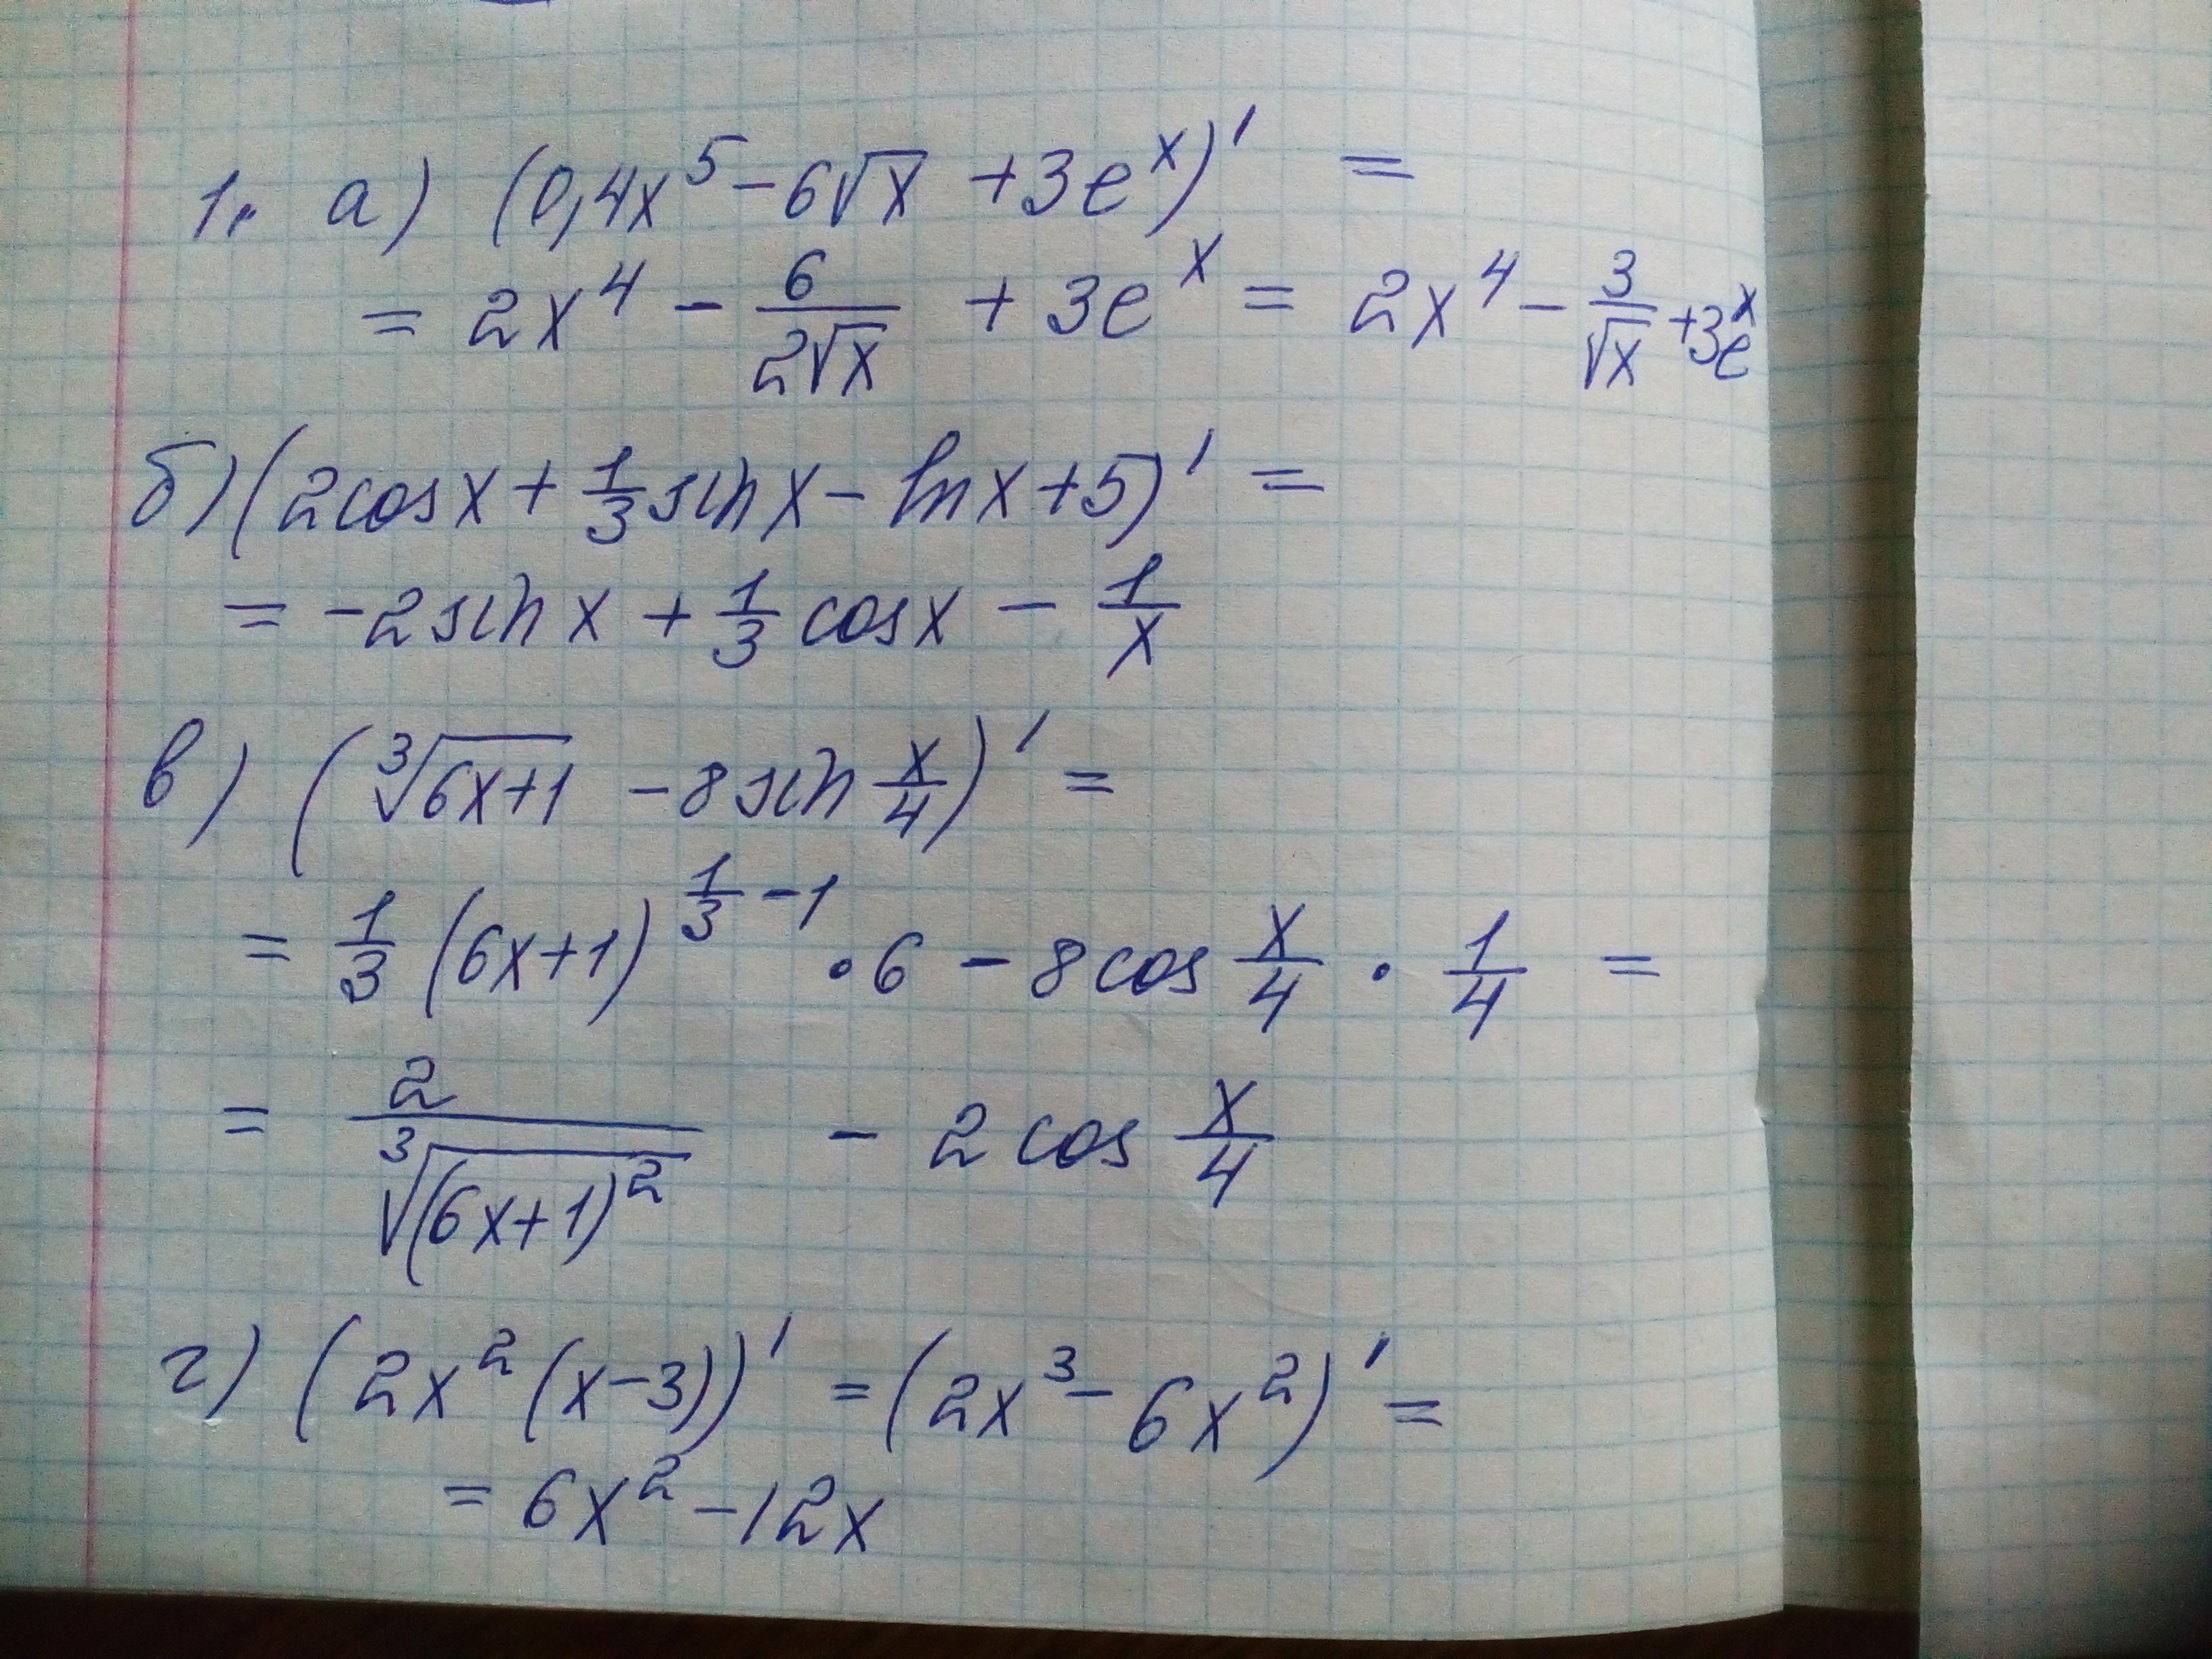 1. а) (0,4x⁵ - 6√x + 3eˣ)' =
= 2x⁴ - 6/(2√x) + 3eˣ = 2x⁴ - 3/√x + 3eˣ
б) (2cosx + 1/3 sinx - lnx + 5)' =
= -2sinx + 1/3 cosx - 1/x
в) (∛(6x+1) - 8sin x/4)' =
= 1/3 (6x+1)^(1/3 - 1) · 6 - 8cos x/4 · 1/4 =
= 2/∛((6x+1)²) - 2cos x/4
г) (2x²(x-3))' = (2x³ - 6x²)' =
= 6x² - 12x